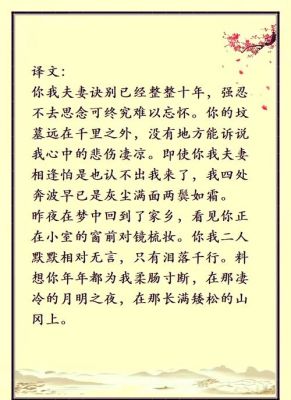 译文：
你我夫妻诀别已经整整十年，强忍
不去思念可终究难以忘怀。你的坟
墓远在千里之外，没有地方能诉说
我心中的悲伤凄凉。即使你我夫妻
相逢怕是也认不出我来了，我四处
奔波早已是灰尘满面两鬓如霜。
昨夜在梦中回到了家乡，看见你正
在小室的窗前对镜梳妆。你我二人
默默相对无言，只有泪落千行。料
想你年年都为我柔肠寸断，在那凄
冷的月明之夜，在那长满矮松的山
冈上。